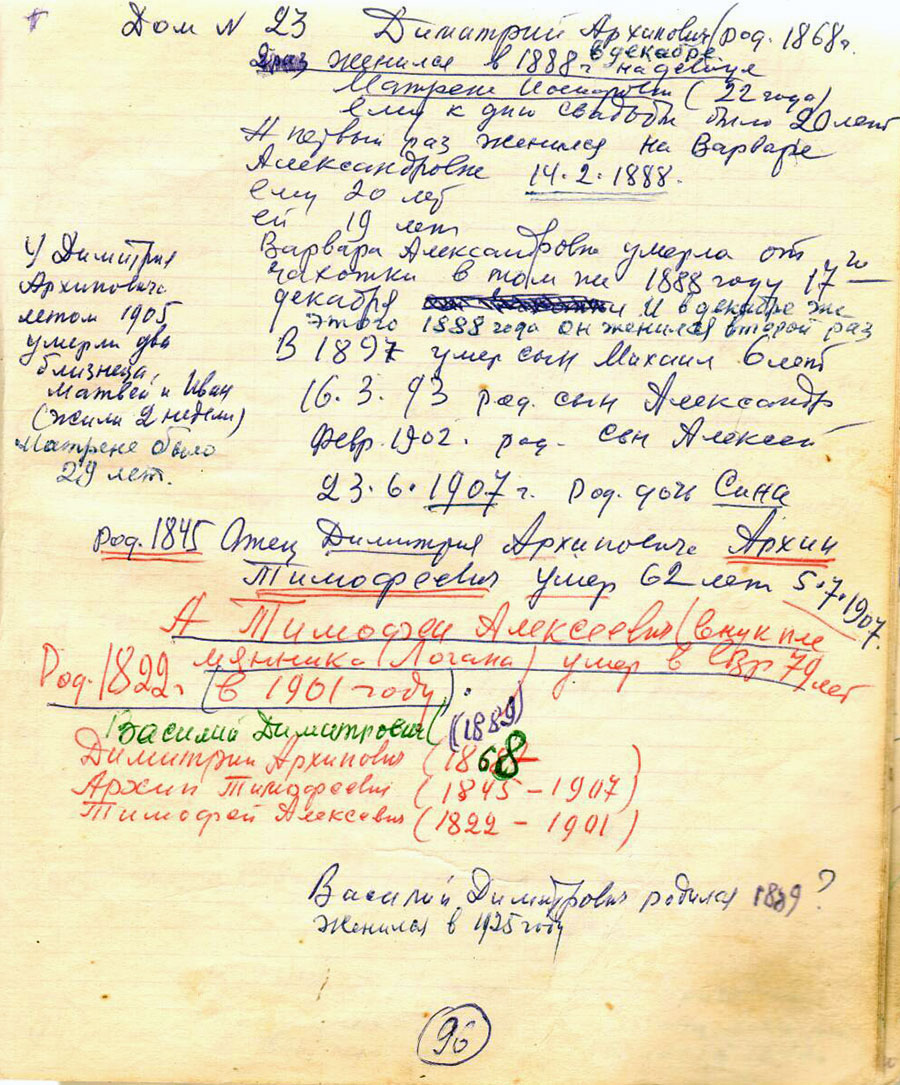 Дом N 23 Димитрий Архипович (род. 1868 г.
2 раз женился в 1888 г. в декабре на девице
Матрене (22 года)
ему к дню свадьбы было 20 лет
А первый раз женился на Варваре
Александровне 14.2.1888.
ему 20 лет
ей 19 лет
Варвара Александровна умерла от
чахотки в том же 1888 году 17 го
декабря И в декабре же
этого 1888 года он женился второй раз
В 1897 умер сын Михаил 6 лет
16.3.93 род. сын Александр
Февр. 1902. род. сын Алексей
23.6.1907 г. род. дочь Сина
У Димитрия
Архиповича
летом 1905
умерли два
близнеца,
Матвей и Иван
(жили 2 недели)
Матрене было
29 лет.
род. 1845 Отец Димитрия Архиповича Архип
Тимофеевич умер 62 лет 5.7.1907.
А Тимофей Алексеевич (внук пле
мянника (Логана) умер в возр 79 лет
Род. 1822 г (в 1901 году).
Василий Димитрович (1889)
Димитрий Архипович (1868)
Архип Тимофеевич (1845 - 1907)
Тимофей Алексевич (1822 - 1901)
Василий Димитрович родился 1889?
Женился в 1925 году
96